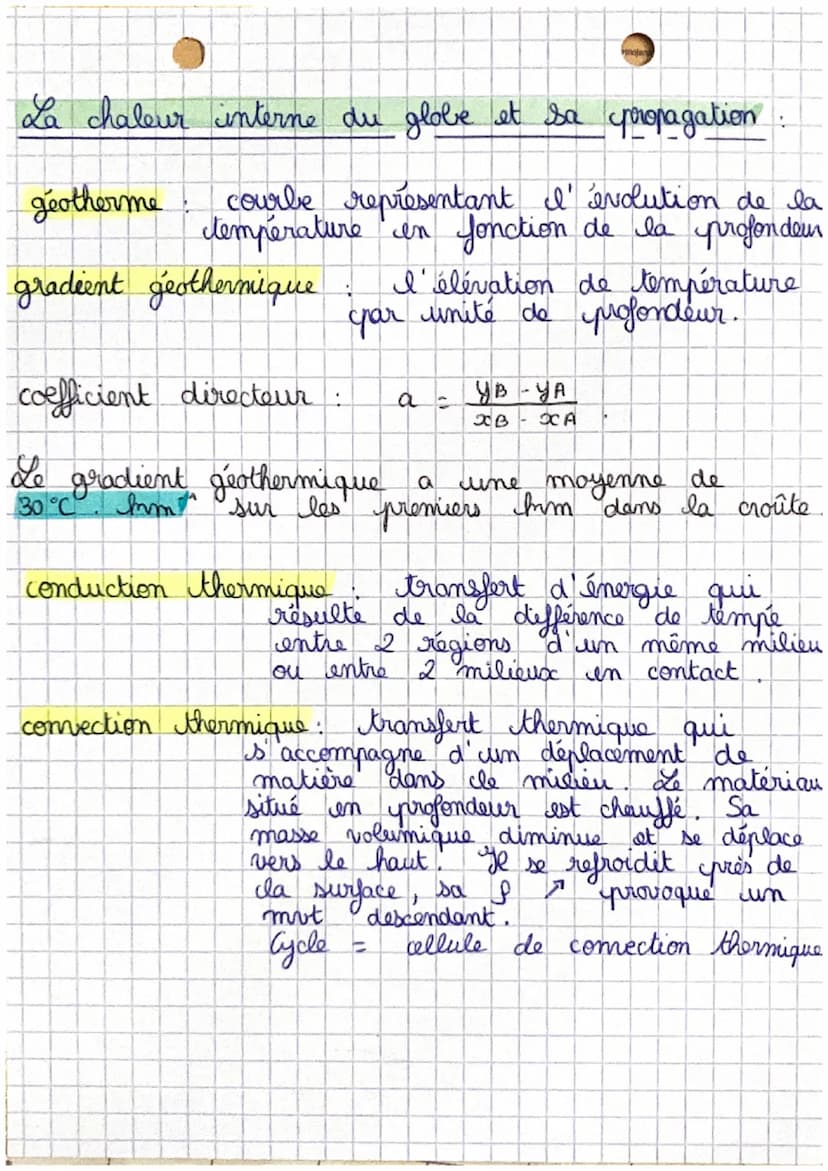 La chaleur interne du globe et sa propagation :
géotherme : courbe représentant l'évolution de la
température en fonction de la profondeur
gradient géothermique : l'élévation de température
par unité de profondeur.
coefficient directeur : a = (yB - yA) / (xB - xA).
Le gradient géothermique a une moyenne de
30 °C . km⁻¹ sur les premiers km dans la croûte.
conduction thermique : transfert d'énergie qui
résulte de la différence de tempé
entre 2 régions d'un même milieu
ou entre 2 milieux en contact.
convection thermique : transfert thermique qui
s'accompagne d'un déplacement de
matière dans le milieu. Le matériau
situé en profondeur est chauffé. Sa
masse volumique diminue et se déplace
vers le haut. Il se refroidit près de
la surface, sa ρ ↗ provoque un
mvt descendant.
Cycle = cellule de convection thermique